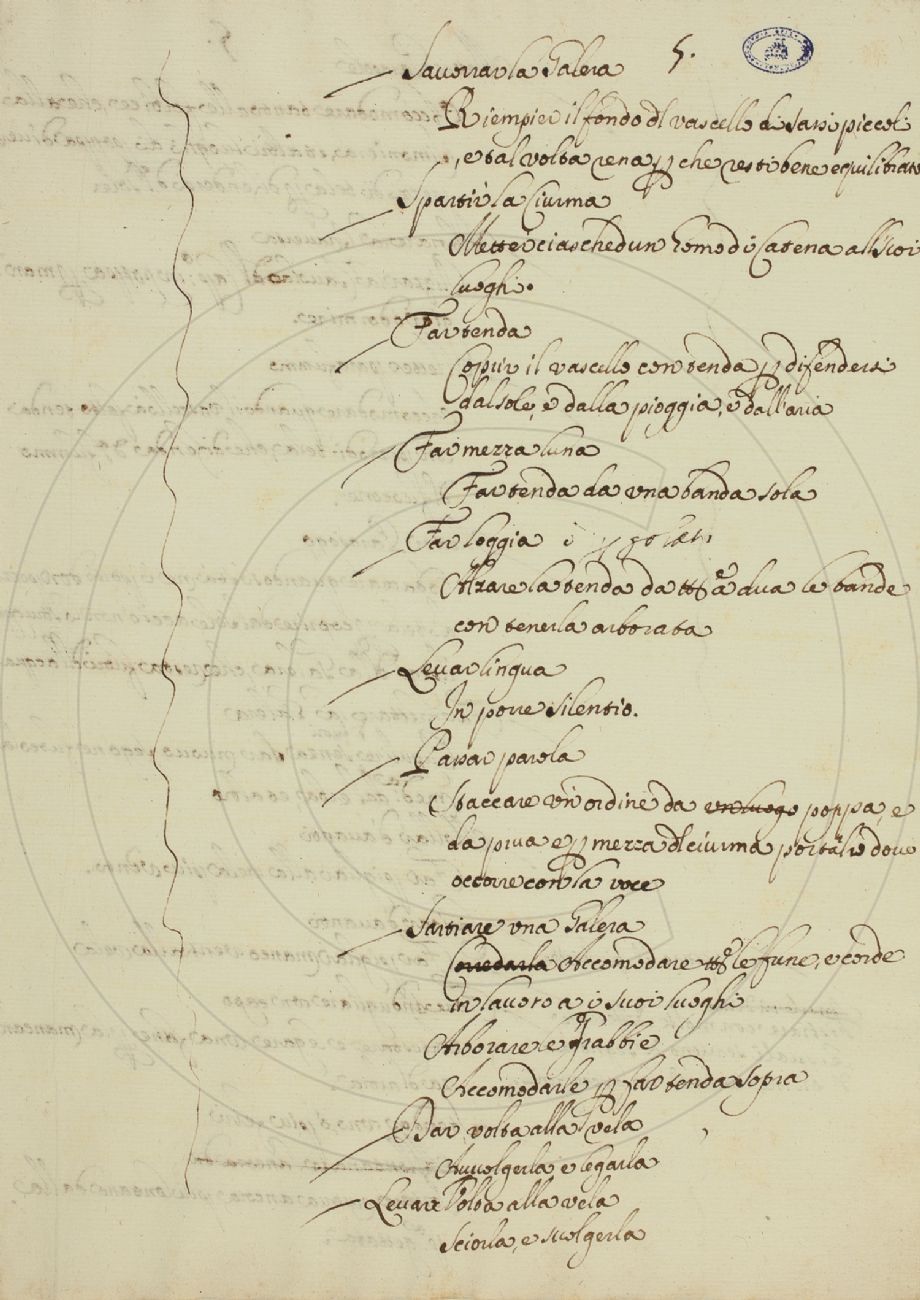 Sauorrar la Galera 5.
Riempier il fondo dl vascello di sassi piccoli
e tal volta rena p che resti bene equilibrato
Spartir la Ciurma
Metter ciaschedun homo di Catena alli suoi
luoghi.
Far tenda
Coprir il vascello con tenda p difendersi
dal sole, e dalla pioggia, e dall'aria
Far mezza luna
Far tenda da vna banda sola
Far loggia
Alzare la tenda da tt.e a dua le bande
con tenerla arborata
Leuar lingua
In porre silentio.
Passar parola
Staccare vn'ordine da vn luogo poppa, e
da prua e p mezza dl ciurma portarlo doue
occorre con la voce
Sartiare vna Galera
Corredarla Accomodare tt.e le fune, e corde
in lauoro a i suoi luoghi
Arborare le grabbie
Accomodarle p far tenda sopra
Dar volta alla vela
Auuolgerla e legarla
Leuare Volta alla vela
Sciorla, e suolgerla